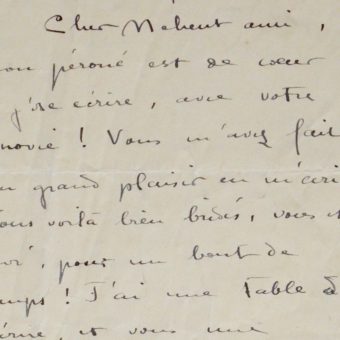 Cher Vehent ami,
on péroné est de cœur
j'ose écrire, avec votre
novié ! Vous m'avez fait
n grand plaisir en m'écri
ous voilà bien bridés, vous e
, pour un bout de
mps ! J'ai une Table d
crire, et vous une